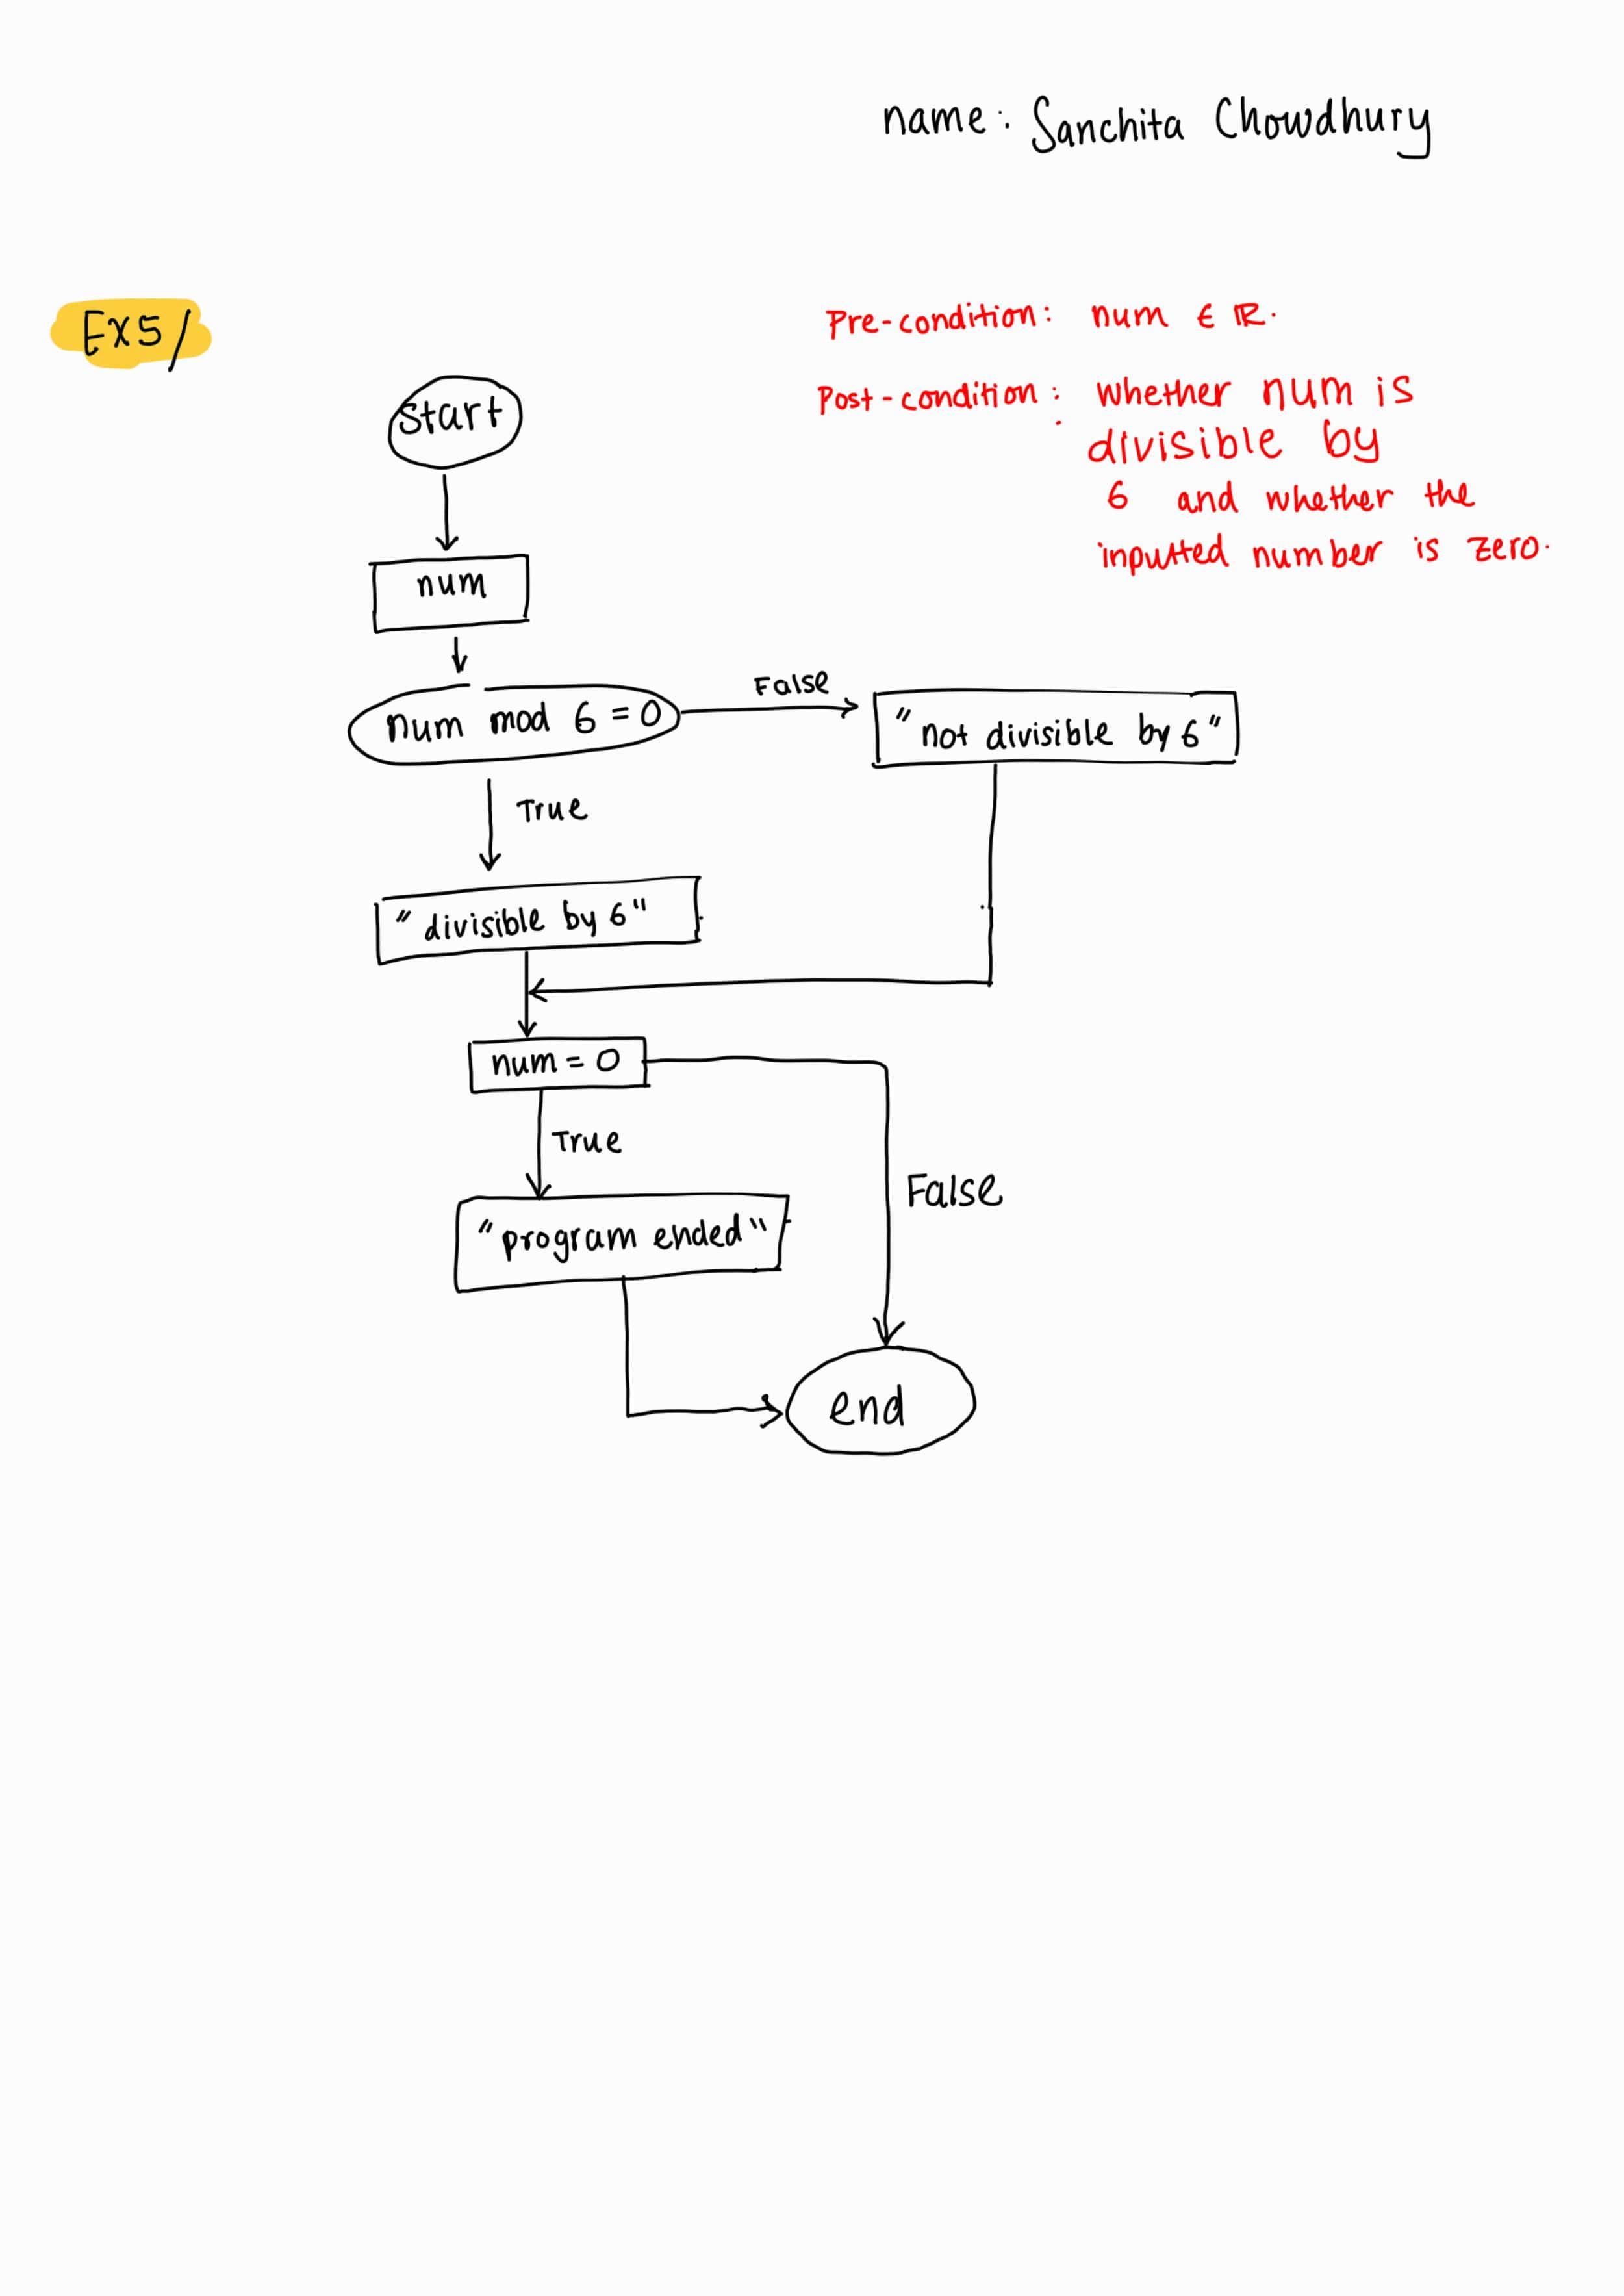 name: Sanchita Chowdhury
Ex5/
Pre-condition: num ∈ ℝ.
Post-condition: whether num is
divisible by
6 and whether the
inputted number is zero.
start
num
num mod 6 = 0
False
"not divisible by 6"
True
"divisible by 6"
num = 0
True
False
"program ended"
end